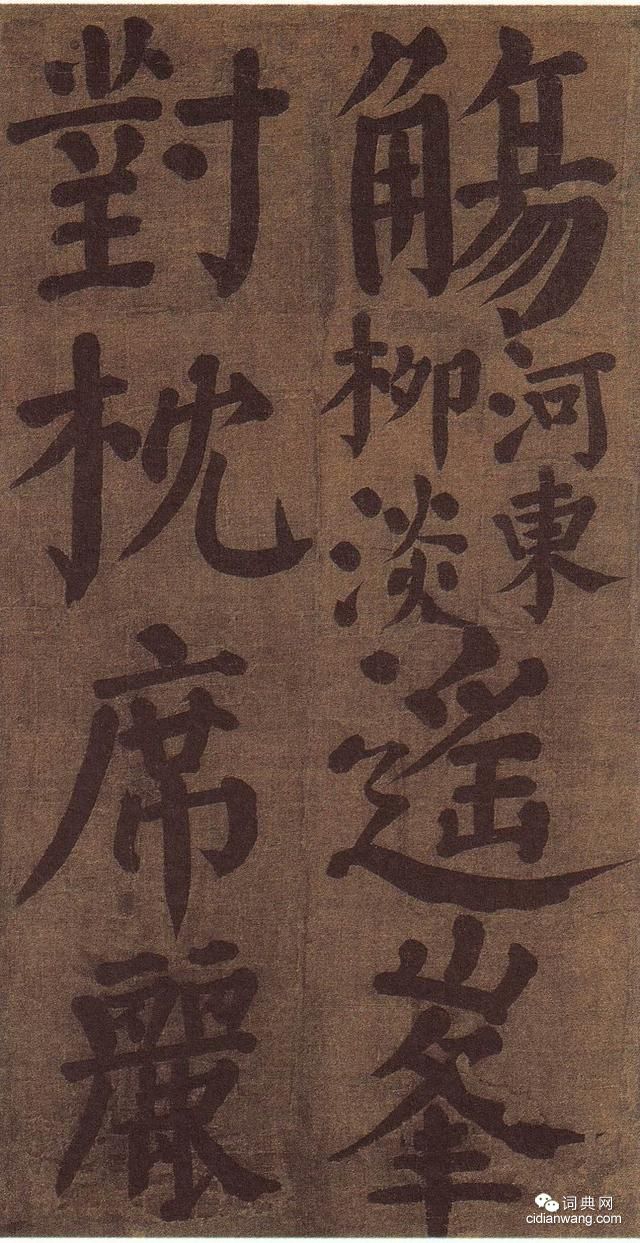 觴
河東
柳淡
遙峯
對枕席麗
词典网
cidianwang.com